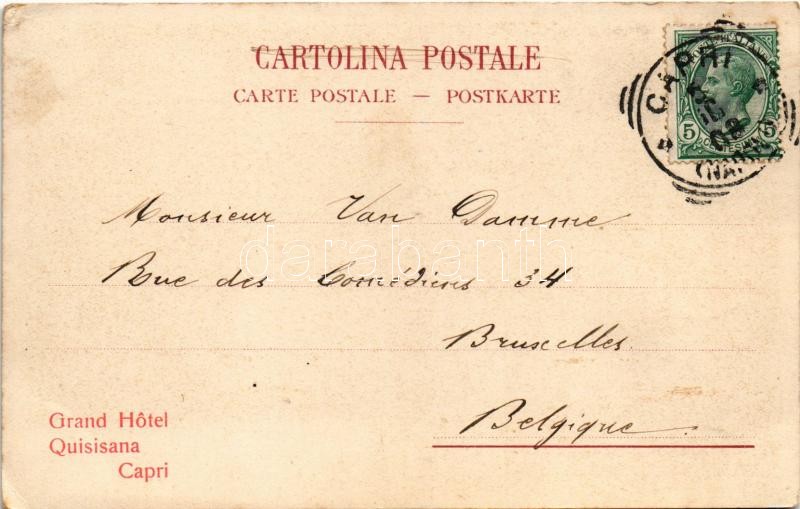 CARTOLINA POSTALE
CARTE POSTALE — POSTKARTE
CAPRI
(NAPOLI)
5 5
Monsieur Van Damme
Rue des Comédiens 34
Bruxelles.
Belgique.
Grand Hôtel
Quisisana
Capri
darabanth